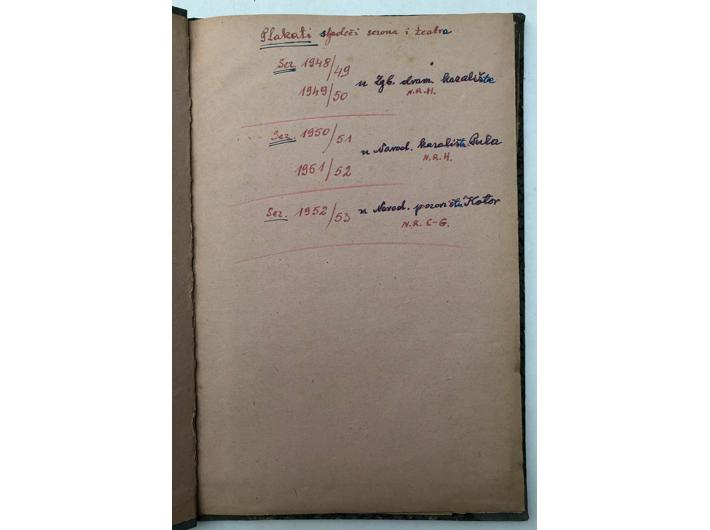 Plakati sljedeći sezona i teatra
Sez. 1948/49
1949/50 u Zgb. dram. kazalište
N.R.H.
Sez. 1950/51
u Narod. kazalištu Pula
N.R.H.
1951/52
Sez. 1952/53 u Narod. pozorištu Kotor
N.R. C-G.